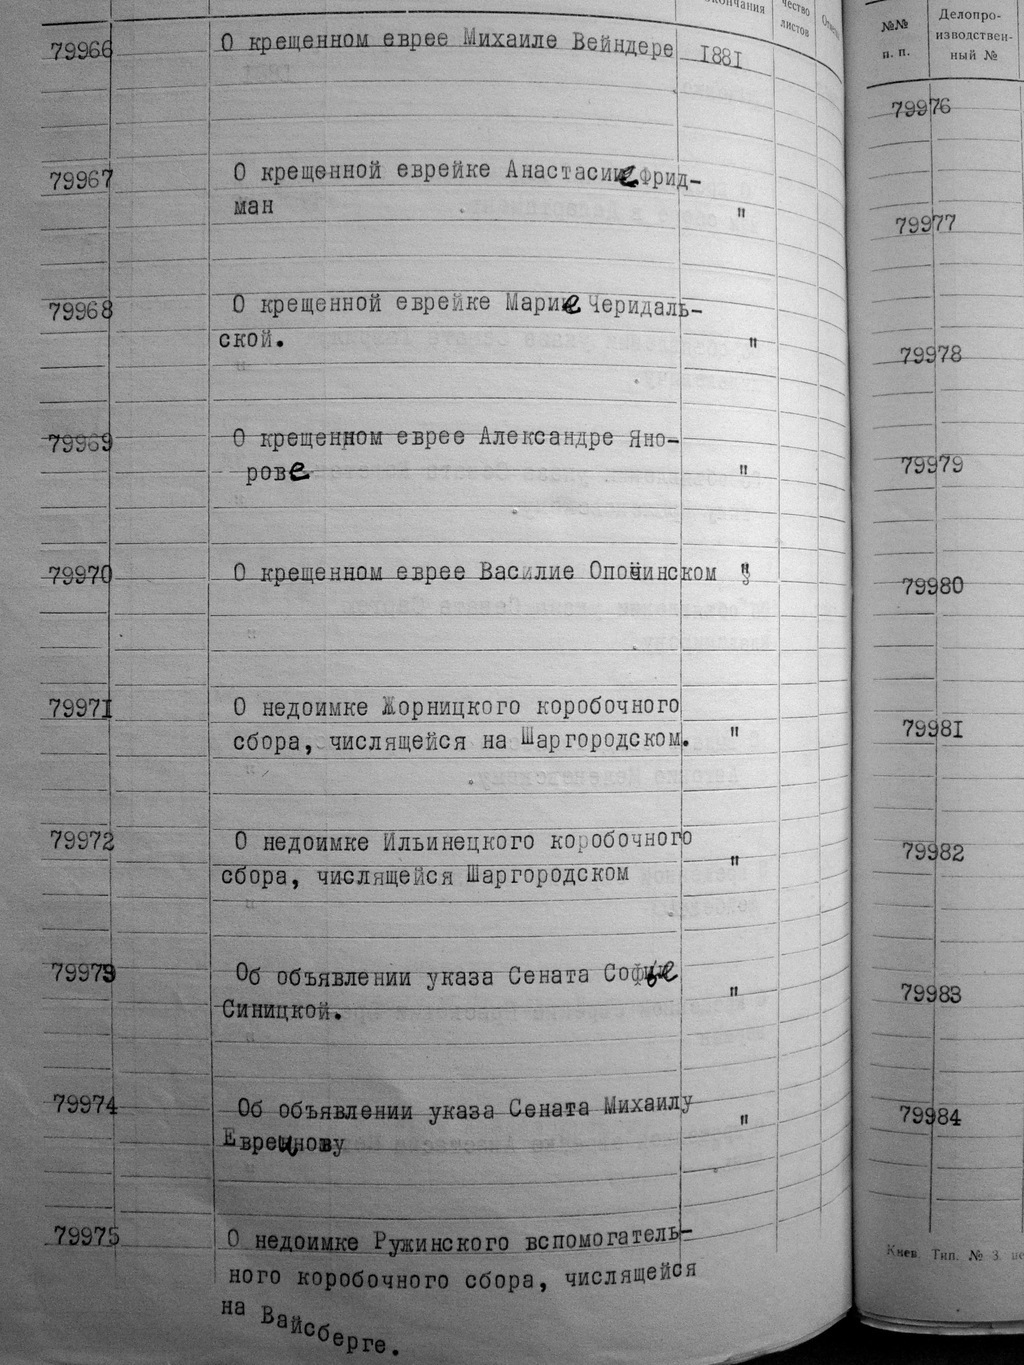 окончания
чество
листов
79966 О крещенном еврее Михаиле Вейндере 1881
79967 О крещенной еврейке Анастасие Фрид-
ман "
79968 О крещенной еврейке Марие Черидаль-
ской. "
79969 О крещенном еврее Александре Яно-
рове "
79970 О крещенном еврее Василие Опочинском "
79971 О недоимке Жорницкого коробочного
сбора, числящейся на Шаргородском. "
79972 О недоимке Ильинецкого коробочного
сбора, числящейся Шаргородском "
79973 Об объявлении указа Сената Софье
Синицкой. "
79974 Об объявлении указа Сената Михаилу
Евреинову "
79975 О недоимке Ружинского вспомогатель-
ного коробочного сбора, числящейся
на Вайсберге.
№№
п. п.
Делопро-
изводствен-
ный №
79976
79977
79978
79979
79980
79981
79982
79983
79984
Киев. Тип. № 3.